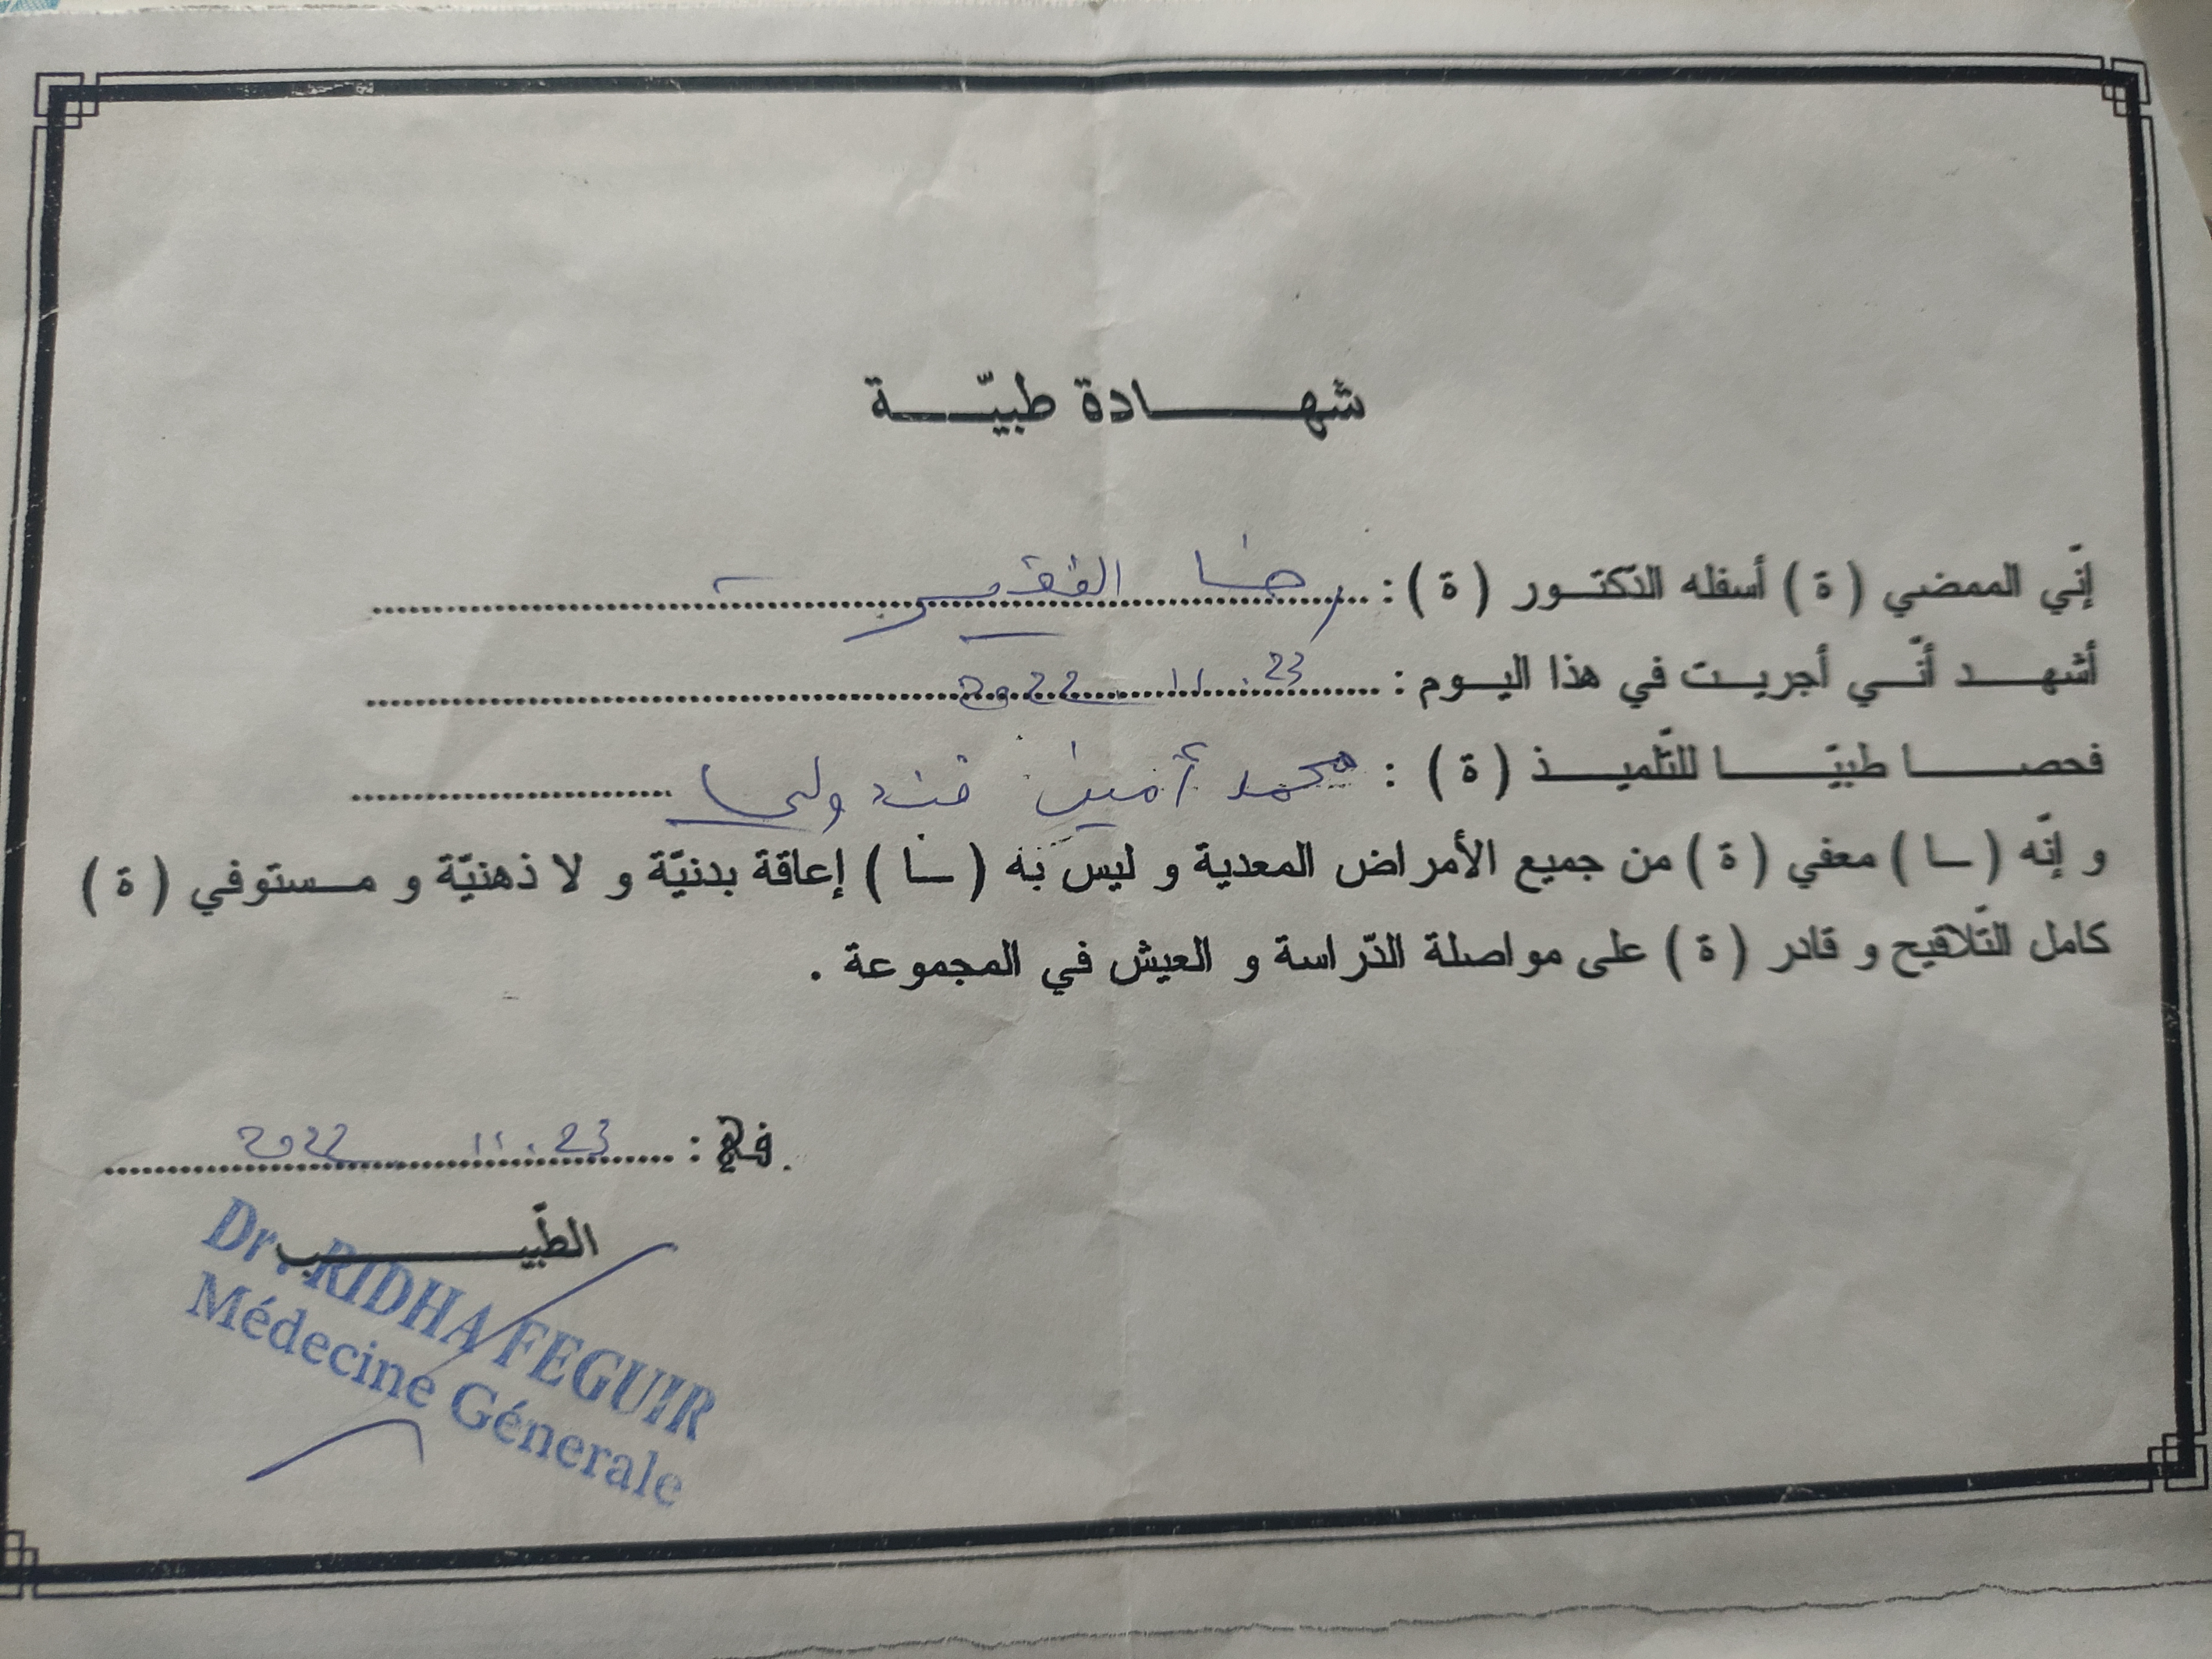 شهادة طبيّة
إنّي الممضي ( ة ) أسفله الدّكتور ( ة ) : رضا الفقير
أشهد أنّي أجريت في هذا اليوم : 23 . 11 . 2022
فحصا طبيّا للتّلميذ ( ة ) : محمد أمين قندولي
و إنّه ( ـا ) معفي ( ة ) من جميع الأمراض المعدية و ليس به ( ـا ) إعاقة بدنيّة و لا ذهنيّة و مستوفي ( ة )
كامل التّلاقيح و قادر ( ة ) على مواصلة الدّراسة و العيش في المجموعة .
في : 23 . 11 . 2022
الطّبيب
Dr. RIDHA FEGUIR
Médecine Génerale